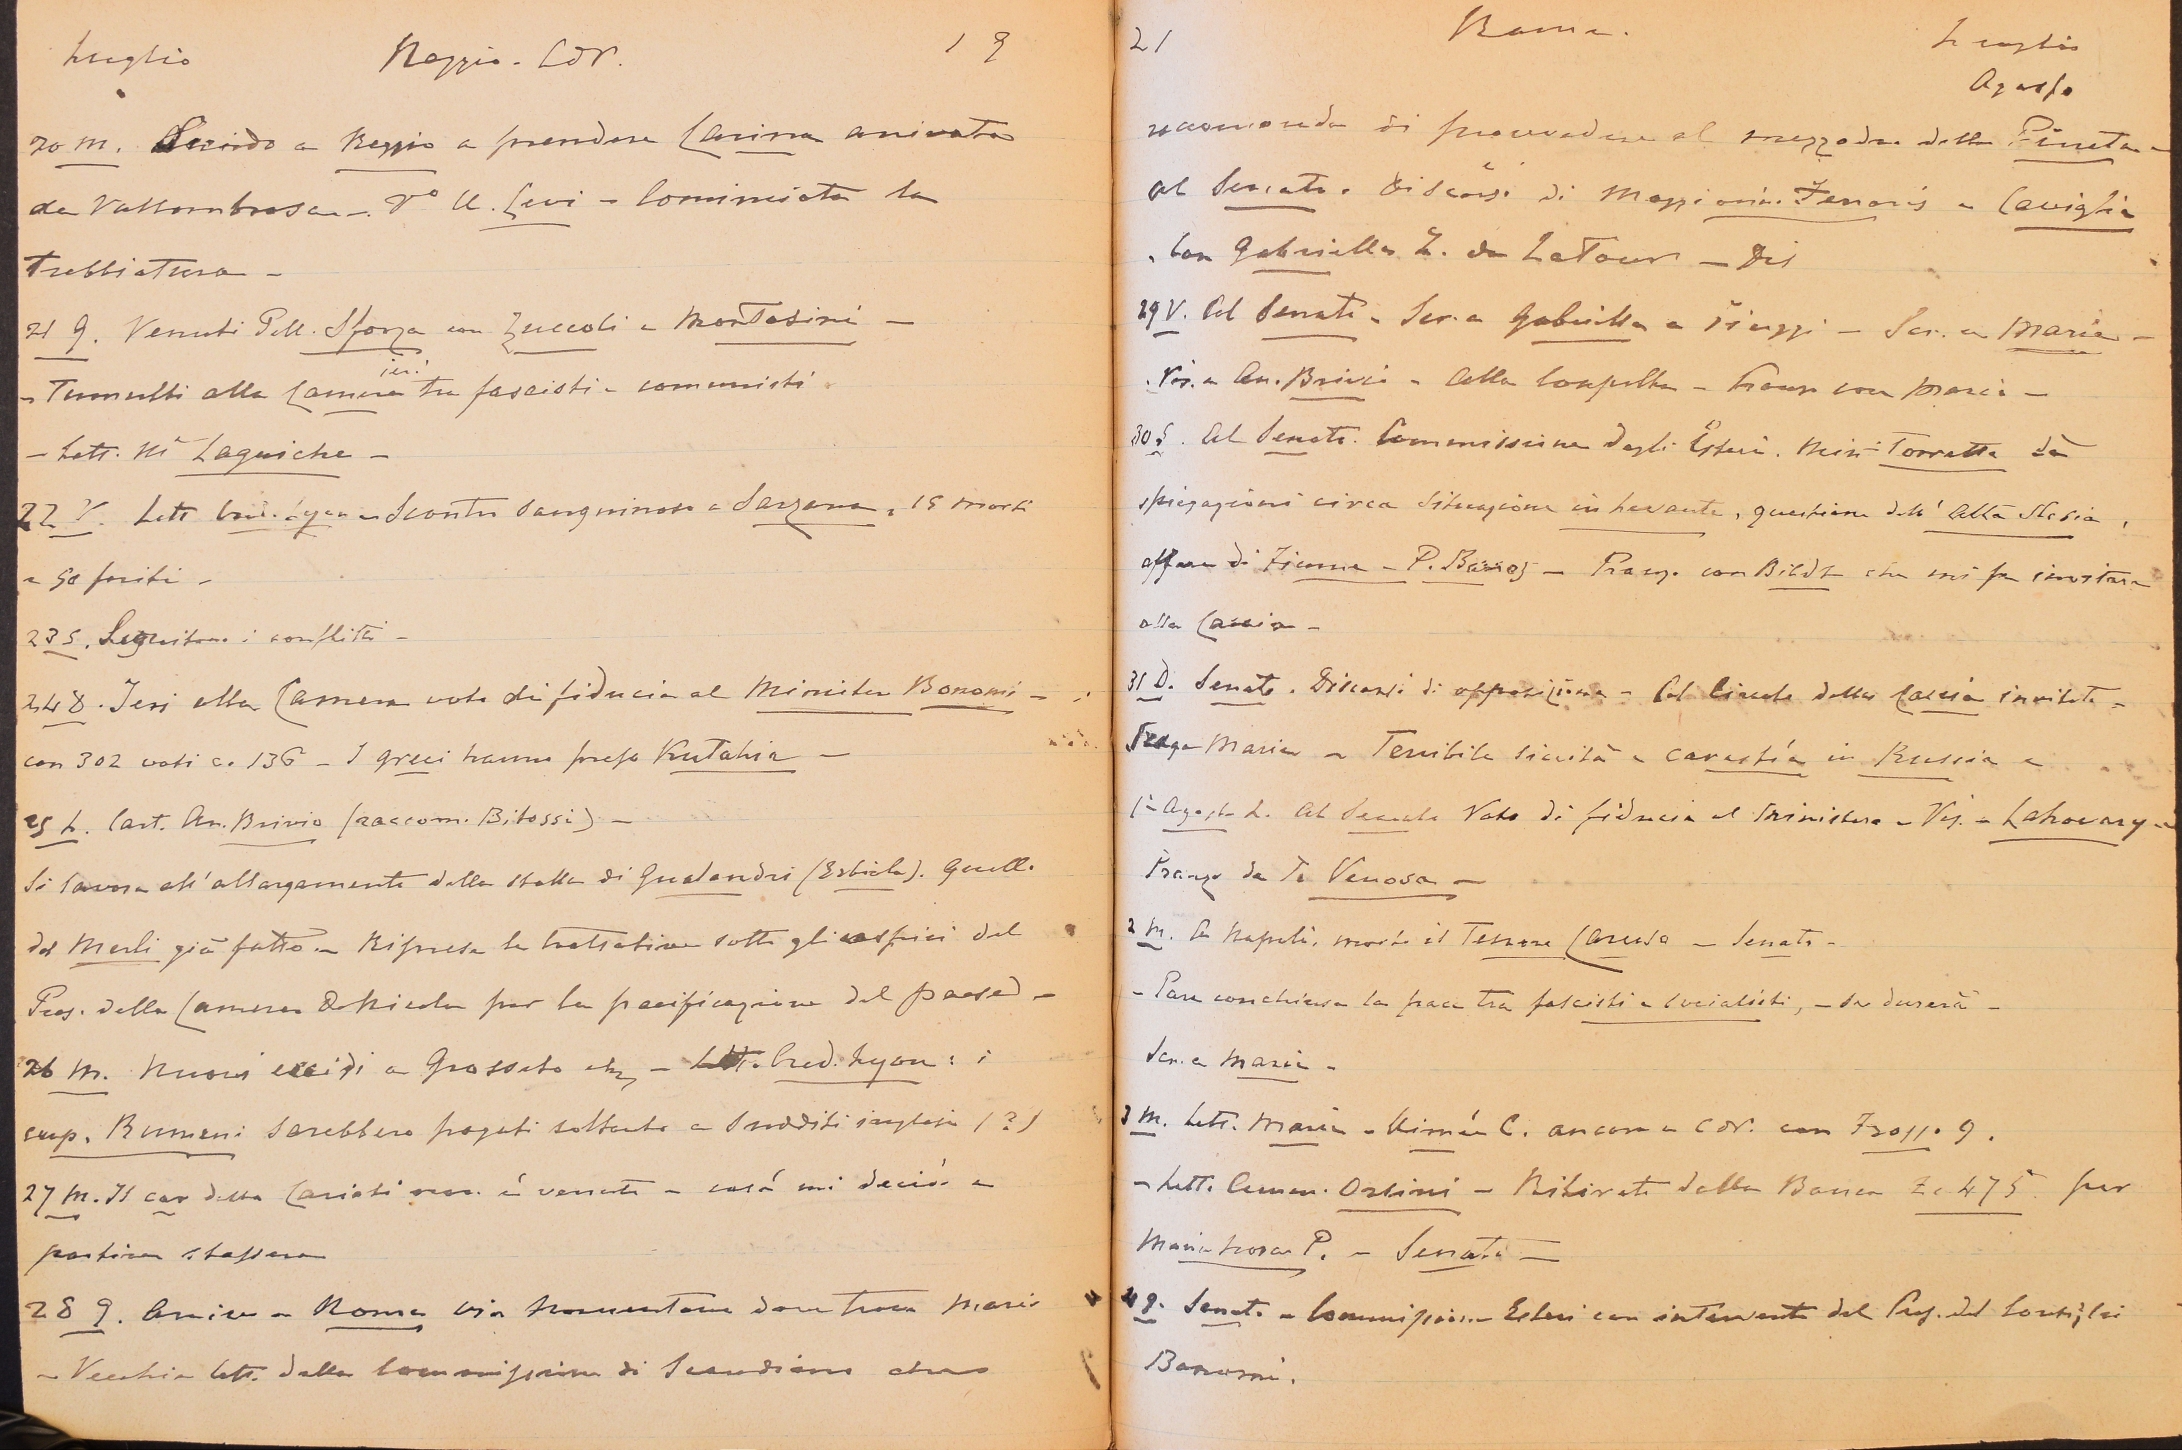 Luglio Reggio. Cor. 19
20 M. a Reggio a prendere arrivata
da Vallombrosa - V° U. Levi - Cominciata la
trebbiatura -
21 G. Venuti Pell. Sforza con Zuccoli e Montasini -
- Tumulti alla Camera ieri tra fascisti e comunisti
- Lett. Mª Laguiche -
22 V. Lett Lyon - Scontro sanguinoso a Sarzana, 15 morti
e 50 feriti -
23 S. Seguitano i conflitti -
24 D. Ieri alla Camera voto di fiducia al Ministero Bonomi -
con 302 voti c. 136 - I greci hanno preso Kutahia -
25 L. Cart. An. Brivio (raccom. Bitossi) -
Si lavora all'allargamento della stalla di Gualandri (Esticlo). Quello
dei Merli già fatto - Riprese le trattative sotto gli auspici del
Pres. della Camera De Nicola per la pacificazione del paese -
26 M. Nuovi eccidi a Grosseto - Lett. Cred. Lyon: i
cup. Rumeni sarebbero pagati soltanto a sudditi inglesi (?)
27 M. Il car della Cariati non è venuto - così mi decido a
partire stassera
28 G. Arrivo a Roma via Nomentana dove trovo Maria
- Vecchia lett. della Commissione di Scandiano che
21 Roma. Luglio
Agosto
raccomanda di provvedere al mezzadro della Pineta -
Al Senato. Discorsi di Maggiorino Ferraris e Caviglia
. Con Gabriella Z. da LaTour -
29 V. Al Senato - Scr. a Gabriella a - Scr. a Maria -
. Vis. a An. Brivio - Alla - con Maria -
30 S. Al Senato. Commissione degli Esteri. Min. Torretta dà
spiegazioni circa situazione in Levante, questione dell'Alta Slesia,
affare di Fiume - P. Baros - Pranzo con Bildt che mi fa invitare
alla Caccia -
31 D. Senato. Discorsi di opposizione - Al Circolo della Caccia invitato -
Maria - Terribile siccità e carestia in Russia -
1° Agosto L. Al Senato Voto di fiducia al Ministero - Vis. a Lahovary -
Pranzo da Te Venosa -
2 M. A Napoli, morto il Tenore Caruso - Senato -
- Pare conchiusa la pace tra fascisti e socialisti, - se durerà -
Scr. a Maria -
3 M. Lett. Maria - Mimì C. ancora a Cor. con G.
- Lett. Comm. Orsini - Ritirate dalla Banca £. 475 per
Maria Rosa P. - Senato -
4 G. Senato - Commissione Esteri con intervento del Pres. del Consiglio
Bonomi.